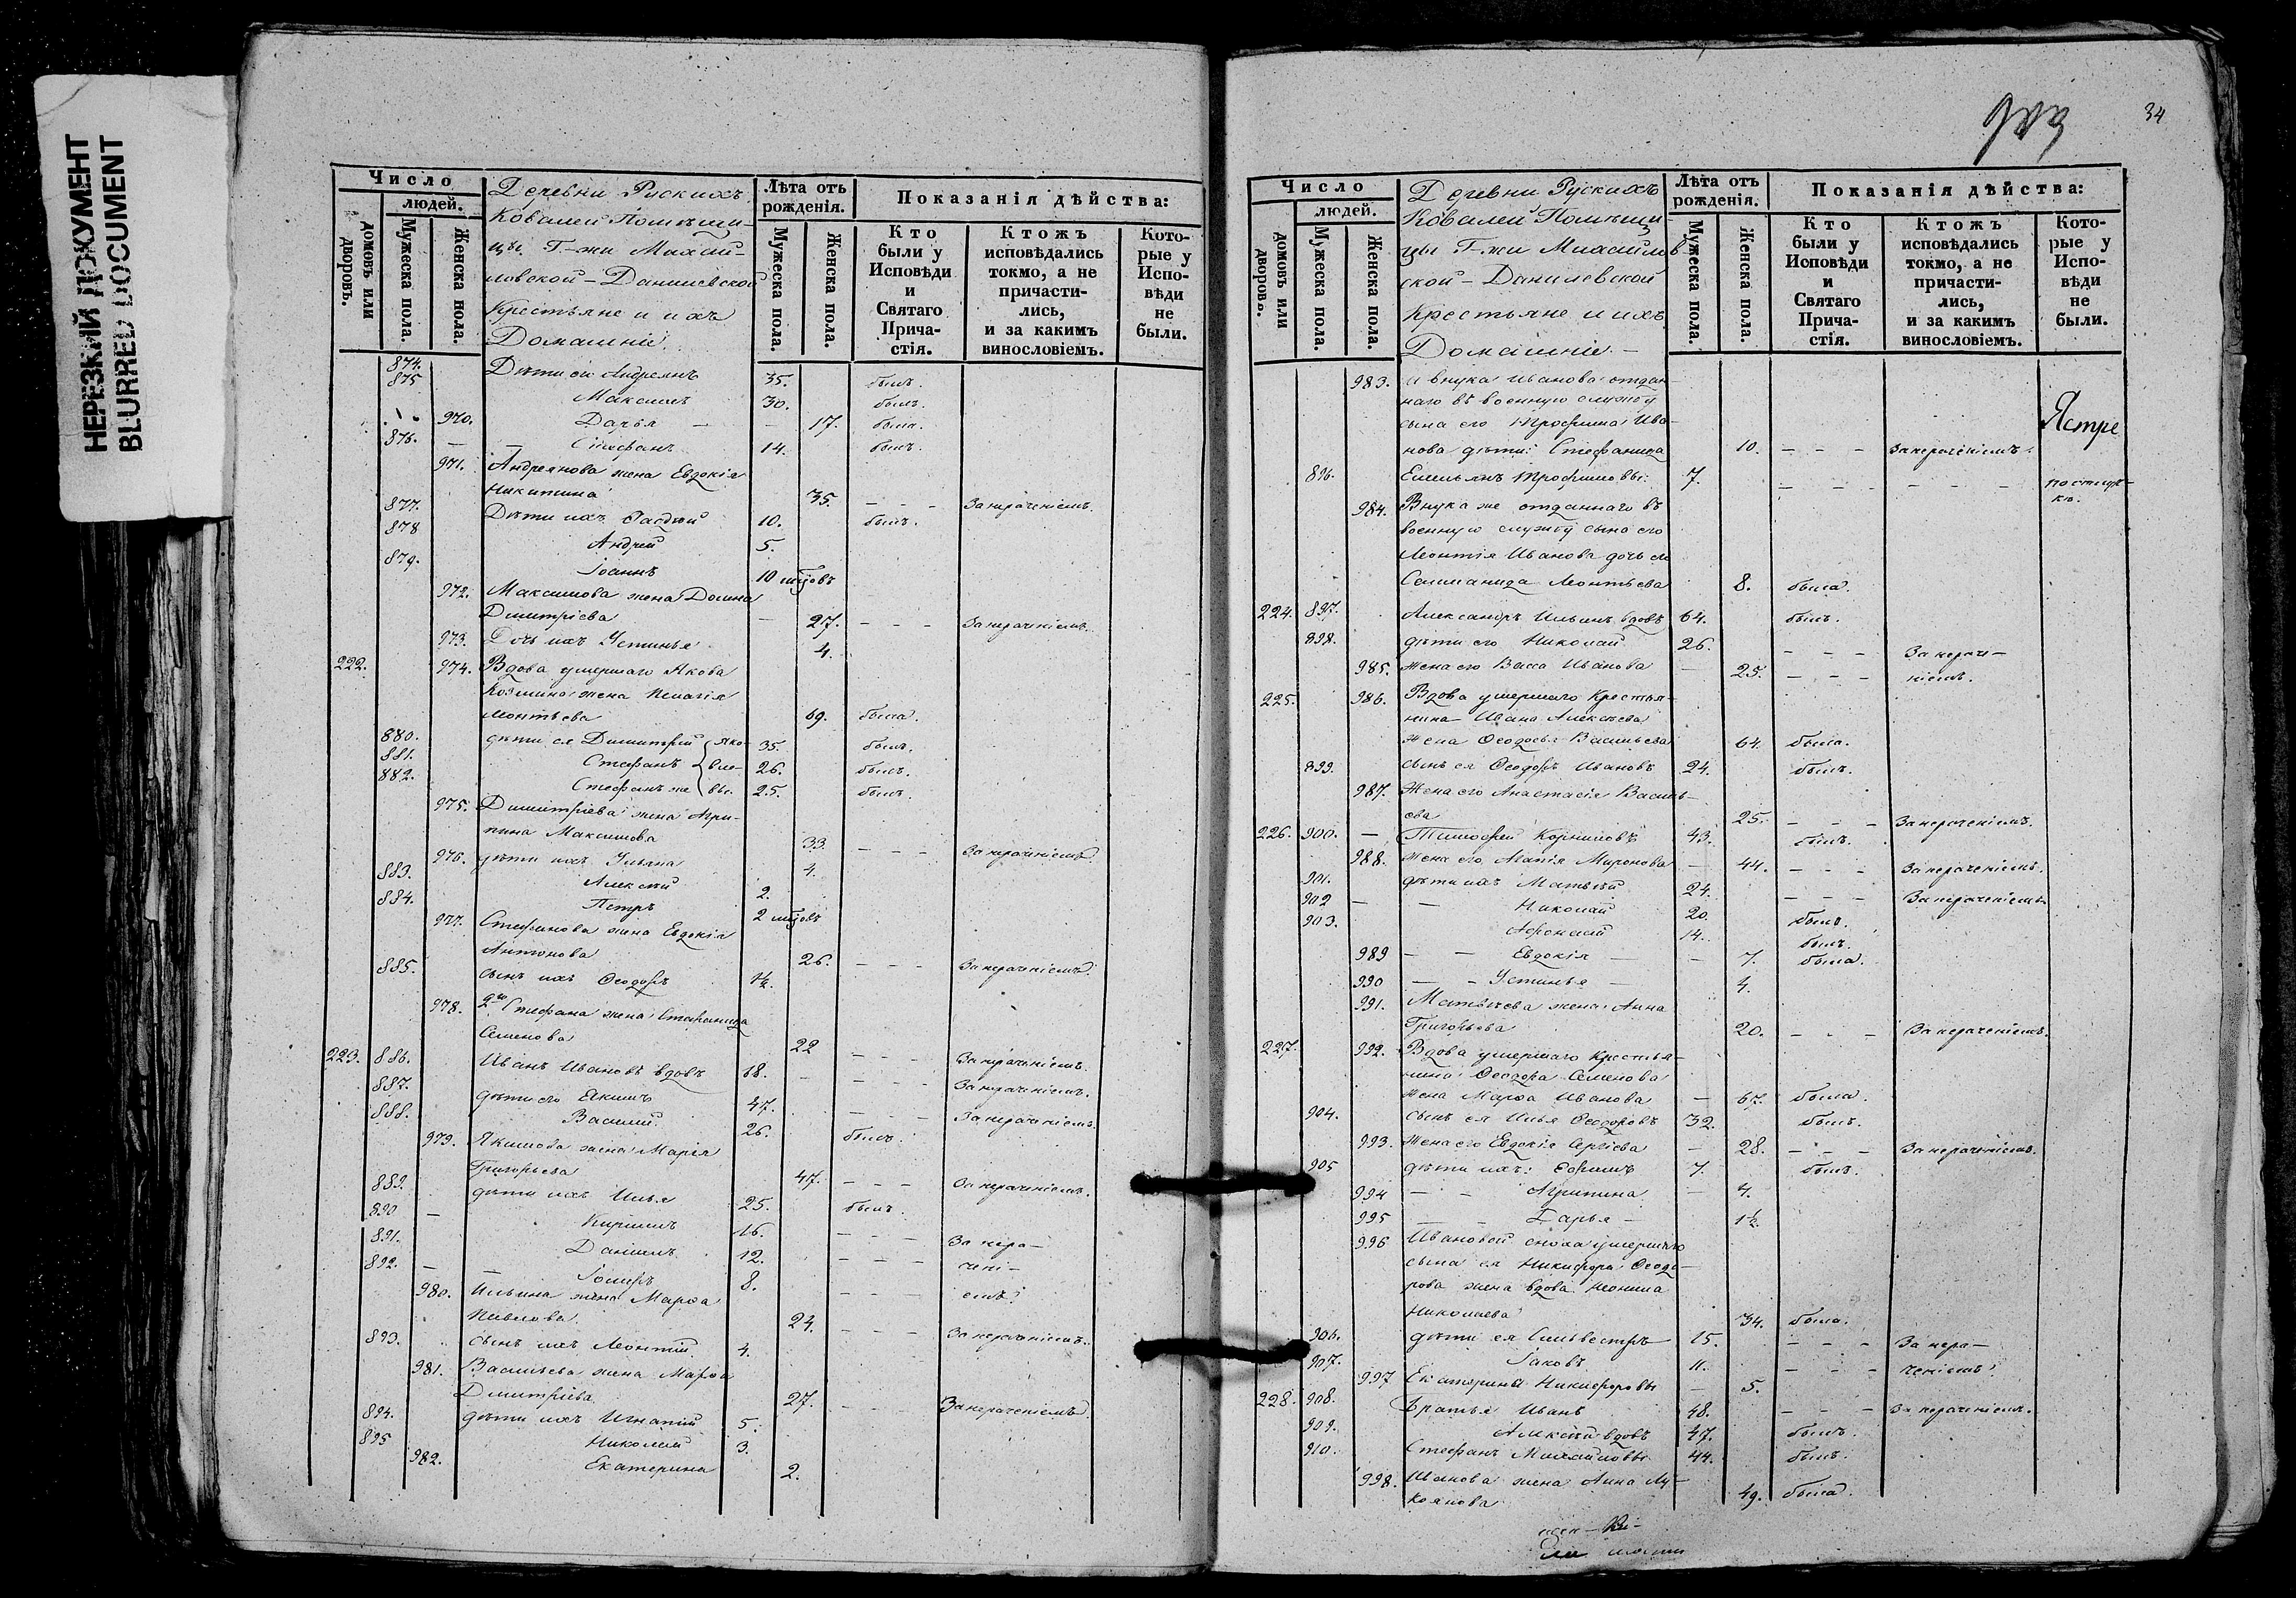 НЕРЕЗКИЙ ДОКУМЕНТ
BLURRED DOCUMENT
Число
людей.
домовъ или дворовъ.
Мужеска пола.
Женска пола.
Деревни Рускихъ
Ковалей Помѣщи-
цы Г-жи Михай-
ловской-Данилевской
Крестьяне и ихъ
Домашніе.
Лѣта отъ рожденія.
Мужеска пола.
Женска пола.
Показанія дѣйства:
Кто были у Исповѣди и Святаго Прича-стія.
Ктожъ исповѣдались токмо, а не причасти-лись, и за какимъ винословіемъ.
Кото-рые у Испо-вѣди не были.
874. Дѣти ея Андреянъ 35. былъ.
875 Максимъ 30. былъ.
970. Дарья – – 17. была.
876. – – Стефанъ 14. былъ.
971. Андреянова жена Евдокія
Никитина 35. – – – За нераченіемъ.
877. Дѣти ихъ 10. былъ.
878 Андрей 5.
879. Іоаннъ 10 мцовъ
972. Максимова жена Домна
Димитріева – 27. – – – За нераченіемъ.
973. Дочь ихъ Устинья 4.
222. 974. Вдова умершаго Якова
Козмина жена Пелагія
Леонтьева 69. была.
880. дѣти ея Димитрій Яко- 35. былъ.
881. Стефанъ вле- 26. былъ.
882. Стефанъ же вы. 25. былъ.
975. Димитріева жена Агри-
пина Максимова 33. – – – За нераченіемъ.
976. дѣти ихъ Ульяна 4.
883. Алексѣй 2.
884. Петръ 2 мцовъ
977. Стефанова жена Евдокія
Антонова 26. – – – За нераченіемъ.
885. сынъ ихъ Ѳеодоръ 1½.
978. 2го Стефана жена Стефанида
Семенова 22 – – – За нераченіемъ.
223. 886. Иванъ Ивановъ вдовъ 68. – – – За нераченіемъ.
887. дѣти его Екимъ 47. – – – За нераченіемъ.
888. Василій 26. былъ.
979. Якимова жена Марія
Григорьева 47. – – – За нераченіемъ.
889. дѣти ихъ Илья 25. былъ.
890 – Кирилъ 16. – – – За нера-
891. Даніилъ 12. – – – чені-
892. – – 8. – – емъ.
980. Ильина жена Марѳа
Павлова. 24. – – – За нераченіемъ.
893. сынъ ихъ Леонтій 4.
981. Васильева жена Марѳа
Димитріева 27. – – За нераченіемъ.
894. дѣти ихъ Игнатій 5.
895 Николай 3.
982. Екатерина 2.
34
Число
людей.
домовъ или дворовъ.
Мужеска пола.
Женска пола.
Деревни Рускихъ
Ковалей Помѣщи
цы Г-жи Михайлов
ской-Данилевской
Крестьяне и ихъ
Домашніе. –
Лѣта отъ рожденія.
Мужеска пола.
Женска пола.
Показанія дѣйства:
Кто были у Исповѣди и Святаго Прича-стія.
Ктожъ исповѣдались токмо, а не причасти-лись, и за какимъ винословіемъ.
Кото-рые у Испо-вѣди не были.
983. и внука Иванова отдан-
наго въ военную службу
сына его Трофима Ива-
нова дѣти: Стефанида 10. – – – За нераченіемъ.
896. Емельянъ Трофимовы. 7. – – – – – –
984. Внука же отданнаго въ
военную службу сына его
Леонтія Иванова дочь его
Соломанида Леонтьева 8. была.
224. 897. Александръ Ильинъ вдовъ 64. былъ.
898. дѣти его Николай 26. – – – За нераче-
985. жена его Васса Иванова – 25. – – – ніемъ.
225. 986. Вдова умершаго Крестья-
нина Ивана Алексѣева
жена Ѳеодосья Васильева 64. была.
899. сынъ ея Ѳеодоръ Ивановъ 24. былъ.
987. Жена его Анастасія Василь-
ева 25. – – – За нераченіемъ.
226. 900. – Тимоѳей Корниловъ 43. былъ.
988. жена его Агапія Миронова – 44. – – – За нераченіемъ.
901. дѣти ихъ Матвѣй 24. – – – За нераченіемъ.
902 – – Николай 20. былъ.
903. Аѳонасій 14. былъ.
989 – – Евдокія – – 7. была.
990 – – Устинья – 4.
991. Матвѣева жена Анна
Григорьева 20. – – – За нераченіемъ.
227. 992. Вдова умершаго Крестья-
нина Ѳеодора Семенова
жена Марѳа Иванова – 67. была.
904. сынъ ея Илья Ѳеодоровъ 32. былъ.
993. Жена его Евдокія Сергіева – 28. – – – За нераченіемъ.
905 дѣти ихъ: Ефимъ 7. былъ.
994 – – Агрипина – 4.
995 – – Дарья – 1½.
996 Ивановой сноха умершаго
сына ея Никифора Ѳеодо-
рова жена вдова Неонила
Николаева 34. была.
906. дѣти ея Сильвестръ 15. – – – За нера-
907. Іаковъ 11. – – – ченіемъ.
997 Екатерина Никифоровы – 5.
228. 908. Братья Иванъ 48. – – – За нераченіемъ.
909. Алексѣй вдовъ 47. былъ.
910. Стефанъ Михайловы 44. былъ.
998. Иванова жена Анна Лу-
кьянова 49. была.